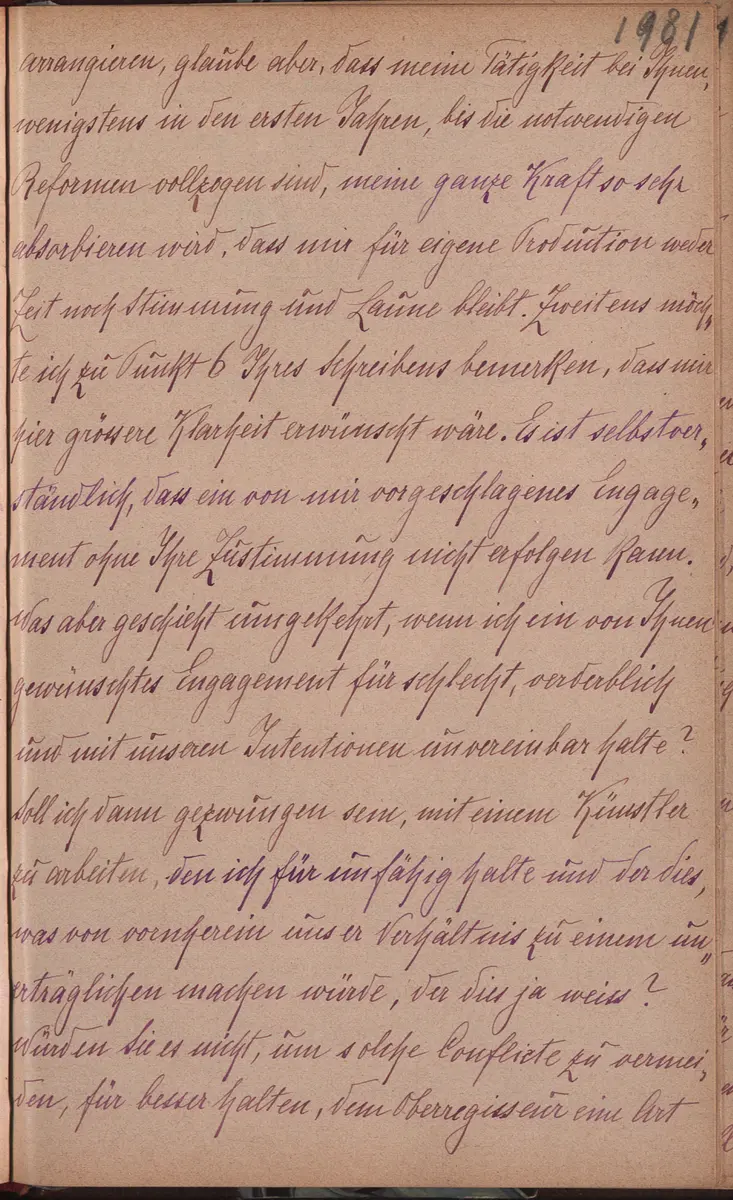 1981
arrangieren, glaube aber, dass meine Tätigkeit bei Ihnen,
wenigstens in den ersten Jahren, bis die notwendigen
Reformen vollzogen sind, meine ganze Kraft so sehr
absorbieren wird, dass mir für eigene Production weder
Zeit noch Stimmung und Laune bleibt. Zweitens möch„
te ich zu Punkt 6 Ihres Schreibens bemerken, dass mir
hier grössere Klarheit erwünscht wäre. Es ist selbstver„
ständlich, dass ein von mir vorgeschlagenes Engage„
ment ohne Ihre Zustimmung nicht erfolgen kann.
Was aber geschieht umgekehrt, wenn ich ein von Ihnen
gewünschtes Engagement für schlecht, verderblich
und mit unseren Intentionen unvereinbar halte?
Soll ich dann gezwungen sein, mit einem Künstler
zu arbeiten, den ich für unfähig halte und der dies,
was von vornherein unser Verhältnis zu einem un„
erträglichen machen würde, der dies ja weiss?
Würden Sie es nicht, um solche Conflicte zu vermei„
den, für besser halten, dem Oberregisseur eine Art